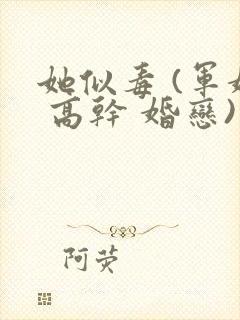 她似毒(軍
高幹 婚戀)
阿荧